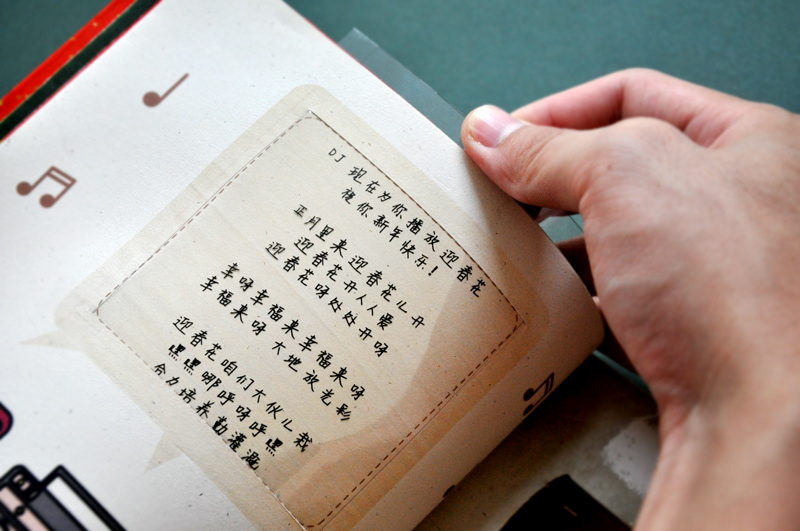 DJ 现在为你播放迎春花
祝你新年快乐!
正月里来迎春花儿开
迎春花开人人爱
迎春花呀处处开呀
幸呀幸福来幸福来呀
幸福来呀大地放光彩
迎春花咱们大伙儿栽
嘿嘿哪呼呀呼嘿
合力培养勤灌溉